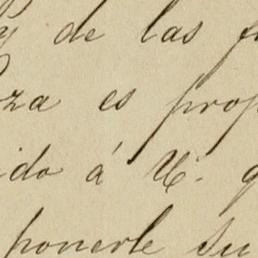 y de las f
za es prop
ido á U. q
ponerle su